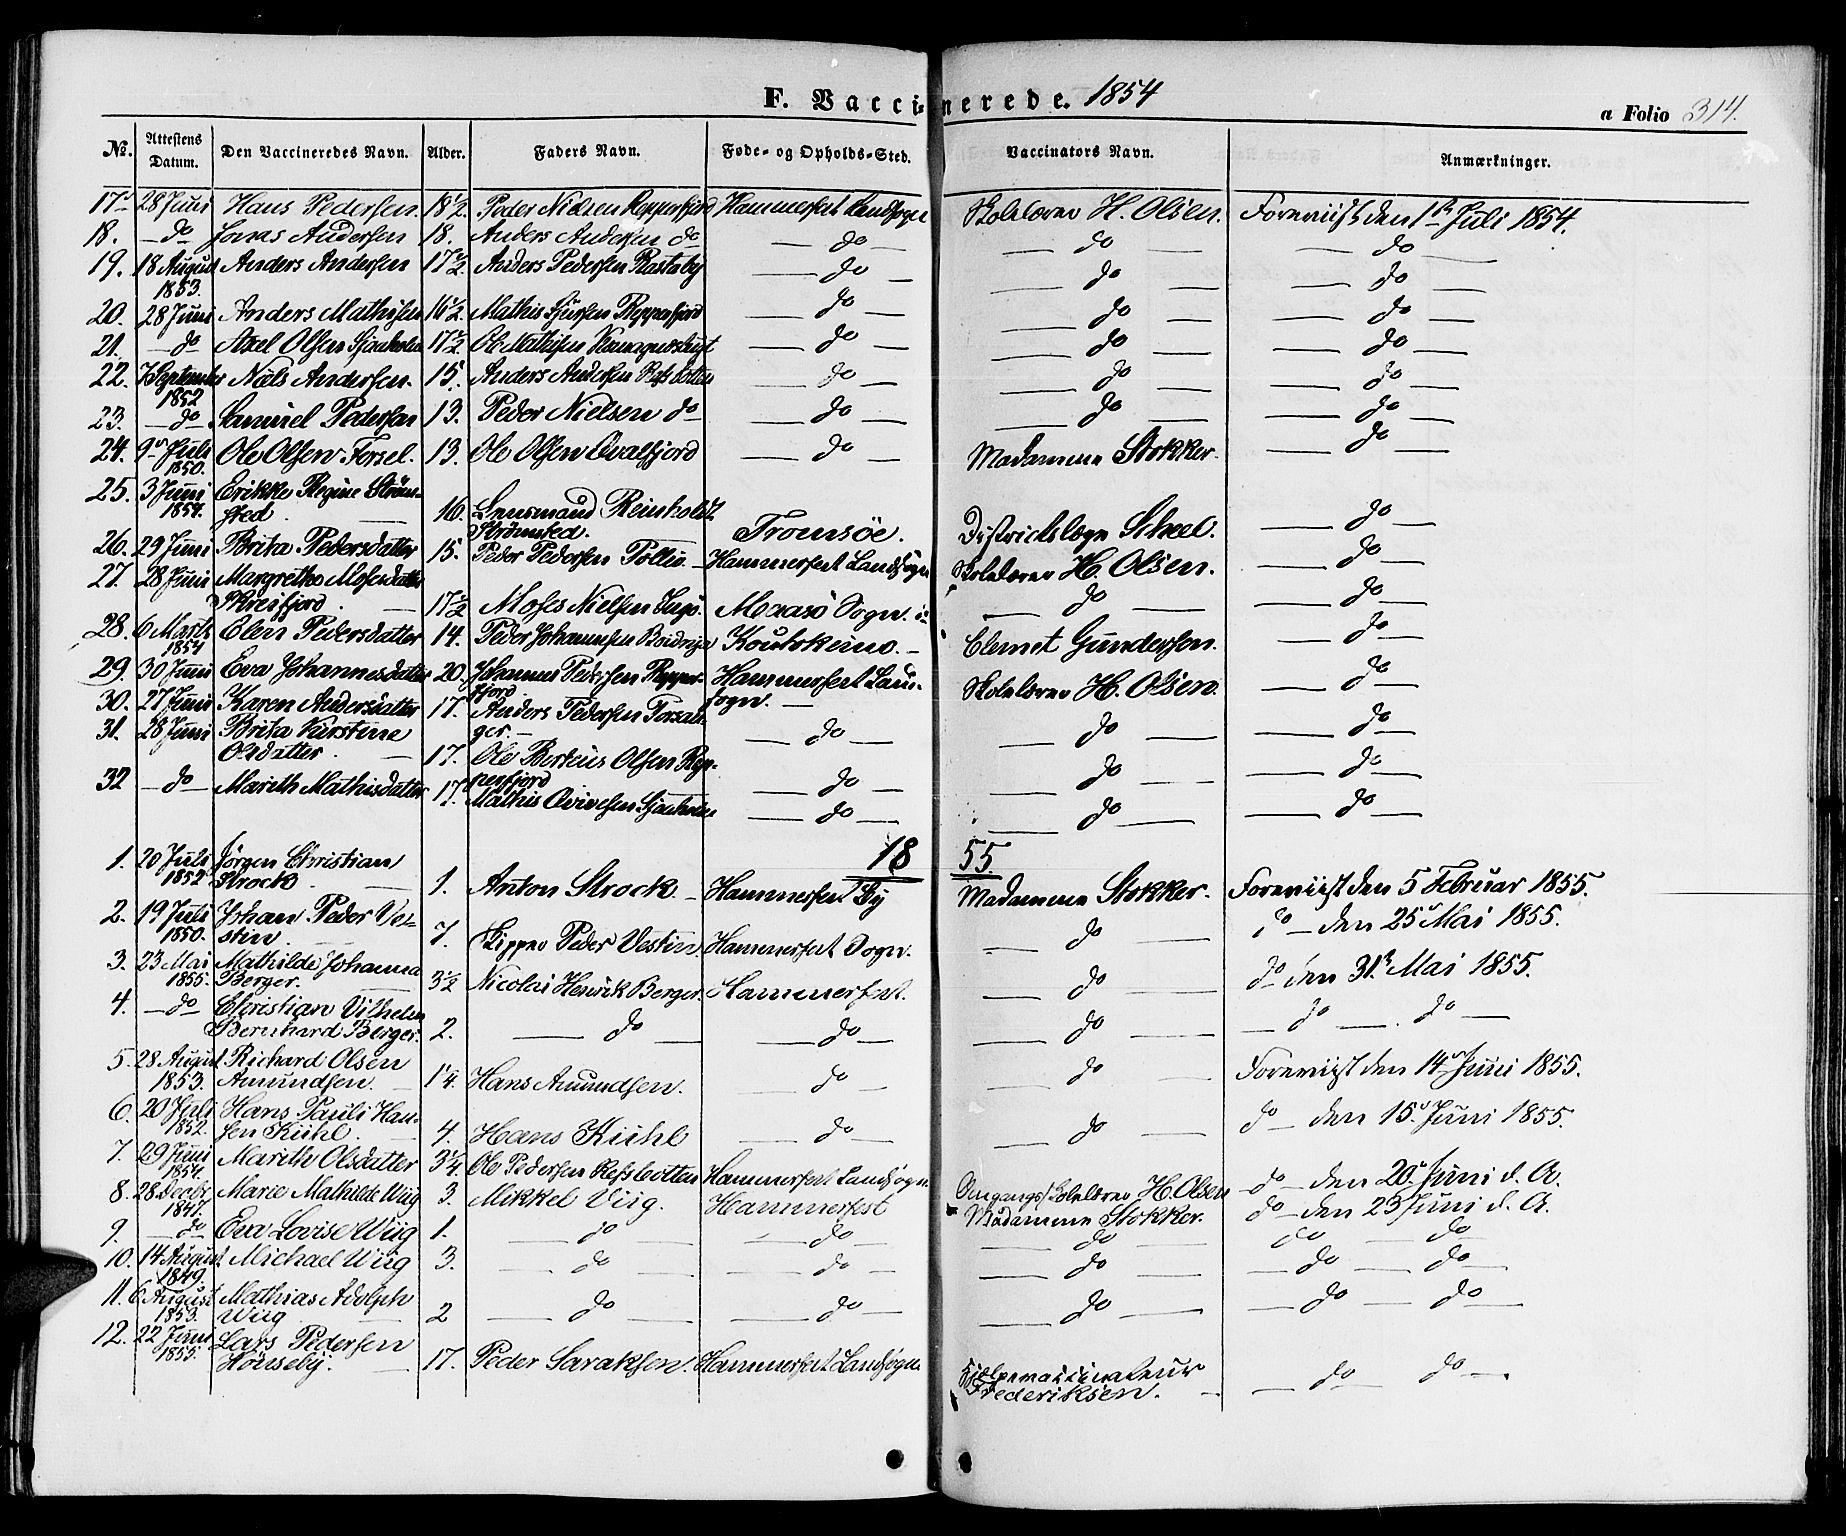 F. Vaccinerede. 1854
a Folio 314.
No. Attestens Datum. Den Vaccineredes Navn. Alder. Faders Navn. Føde- og Opholds-Sted. Vaccinators Navn. Anmærkninger.
17. 28 Juni Hans Pedersen. 18 1/2. Peder Nielsen Repperfjord Hammerfest Landsogn Skolelærer H. Olsen. Foreviist den 1ste Juli 1854.
18. — do Jonas Andersen 18. Anders Andersen do — do — — do — — do —
19. 18 August 1853. Anders Andersen 17 1/2. Anders Pedersen — do — — do — — do —
20. 28 Juni Anders Mathisen 16 1/2 Mathis Repperfjord — do — — do — — do —
21. — do Axel Olsen 17 1/2. Ole Mathisen — do — — do — — do —
22. 7 September 1852 Nils Andersen. 15. Anders Andersen Refsbotten — do — — do — — do —
23. — do — Samuel Pedersen 13. Peder Nielsen do — — do — — do — — do —
24. 9 Juli 1850. Ole Olsen Forsel. 13. Ole Olsen Qvalfjord — do — Madamme Stokker. — do —
25. 3 Juni 1854. Erikke Regine Strøm-
sted. 16. Lensmand Reinholdt
Strömsted. Tromsöe. Districtslæge Scheel. — do —
26. 29 Juni Brita Pedersdatter 15. Peder Pedersen — Hammerfest Landsogn Skolelærer H. Olsen. — do —
27. 28 Juni Margrethe Mosesdatter
17 1/2 Moses Nielsen Maasö Sogn. — do — — do —
28. 6 Marts 1854 Elen Pedersdatter 14. Peder Johannesen Koutokeino. — Clemet Gundersen. — do —
29. 30 Juni Eva Johannesdatter 20. Johannes Pedersen Repper-
fjord Hammerfest Lan-
sogn. — Skolelærer H. Olsen. — do —
30. 27 Juni Karen Andersdatter 17. Anders Pedersen Porsan-
ger. — — do — — do — — do —
31. 28 Juni Brita Kirstine
Olsdatter. 17. Ole Olsen Rep-
perfjord — do — — do — — do —
32 — do — Marith Mathisdatter 17. Mathis — do — — do — — do —
1855.
1. 20 Juli 1852 Jörgen Christian
Strock. 1. Anton Strock. — Hammerfest By Madamme Stokker. Foreviist den 5 Februar 1855.
2. 19 Juli 1850. Johan Peder Ve-
stin. 7. Skipper Peder Vestin. Hammerfest Sogn. — do — do — den 25 Mai 1855.
3. 23 Mai 1855. Mathilde Johanna
Berger. 3 1/2 Nicolai Henrik Berger. Hammerfest. — do — do — den 31te Mai 1855.
4. — do Christian Vilhelm
Bernhard Berger. 2. — do — — do — — do — — do — . do —
5. 28 August 1853. Richard Olsen
Amundsen. 1 1/4. Hans Amundsen. — do — — do — Foreviist den 14 Juni 1855.
6. 20 Juli 1852. Hans Pauli Han-
sen Kühl. 4. Hans Kühl — do — — do — do — den 15. Juni 1855.
7. 29 Juni 1854. Marith Olsdatter 3 1/4. Ole Pedersen Refsbotten Hammerfest Landsogn. Omgangsskolelærer H. Olsen do — den 20. Juni d. A.
8. 28 Decbr 1847. Marie Mathilde Wiig 3. Mikkel Viig. Hammerfest Madamme Stokker. do — den 23 Juni d. A.
9. — do Eva Lovise Wiig 1. — do — — do — — do — do — do
10. 14 August 1849. Michael Wiig 3. — do — — do — — do — — do — do —
11. 6 August 1853. Mathias Adolph
Wiig 2 — do — — do — — do — — do — do —
12. 22 Juni 1855. Lars Pedersen
17. Peder Saraksen. Hammerfest Landsogn. Hjelpevaccinateur
Frederiksen. — do — do —